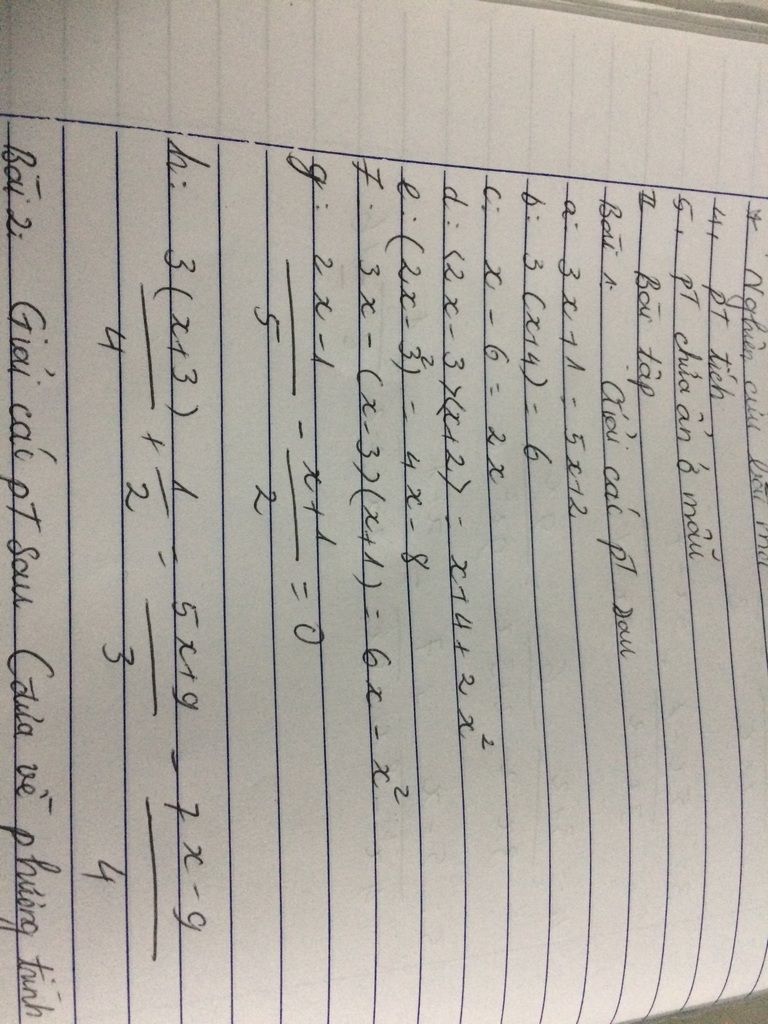 * Nghiên cứu bài mới
4, pT tích
5, pT chứa ẩn ở mẫu
II Bài tập
Bài 1: Giải các pT sau
a: 3x+1 = 5x+2
b: 3(x+4) = 6
c: x - 6 = 2x
d: (2x-3)(x+2) = x+4+2x²
e: (2x-3²) = 4x-8
f: 3x-(x-3)(x+1) = 6x-x²
g: (2x-1)/5 - (x+1)/2 = 0
h: 3(x+3)/4 + 1/2 = (5x+9)/3 - (7x-9)/4
Bài 2: Giải các pT sau (đưa về phương trình